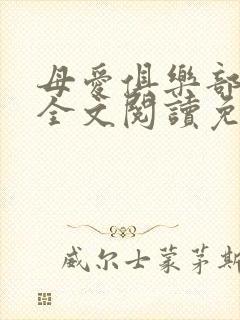 母愛俱樂部
全文閱讀免
威尔士萊茅斯